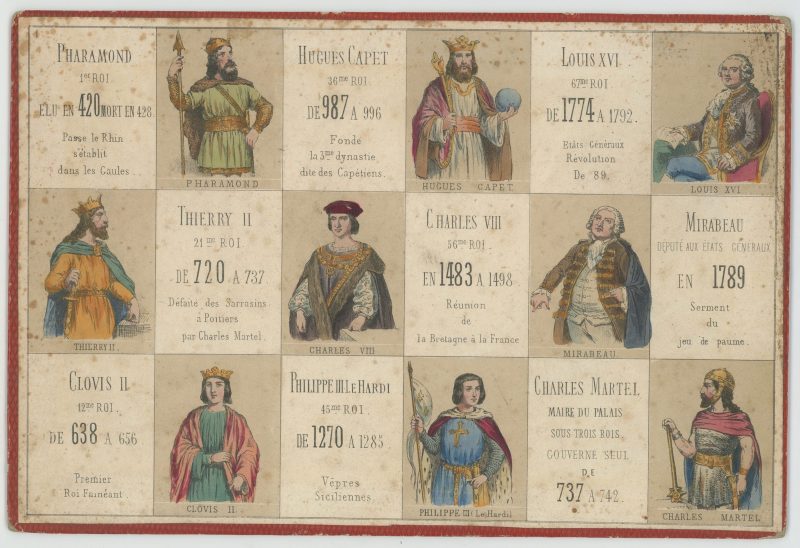 PHARAMOND
1er ROI
ELU EN 420 MORT EN 428.
Passe le Rhin
s'établit
dans les Gaules.
PHARAMOND
HUGUES CAPET
36me ROI
DE 987 A 996
Fonde
la 3me dynastie
dite des Capétiens.
HUGUES CAPET
LOUIS XVI
67me ROI
DE 1774 A 1792.
Etats Généraux
Révolution
De 89.
LOUIS XVI
THIERRY II.
THIERRY II
21me ROI
DE 720 A 737.
Défaite des Sarrasins
à Poitiers
par Charles Martel.
CHARLES VIII
CHARLES VIII
56me ROI.
EN 1483 A 1498
Réunion
de
la Bretagne à la France
MIRABEAU
MIRABEAU
DÉPUTÉ AUX ÉTATS GÉNÉRAUX
EN 1789
Serment
du
jeu de paume.
CLOVIS II
12me ROI.
DE 638 A 656
Premier
Roi Fainéant.
CLOVIS II.
PHILIPPE III LE HARDI
45me ROI.
DE 1270 A 1285
Vêpres
Siciliennes.
PHILIPPE III (Le Hardi)
CHARLES MARTEL
MAIRE DU PALAIS
SOUS TROIS ROIS,
GOUVERNE SEUL
DE
737 A 742.
CHARLES MARTEL